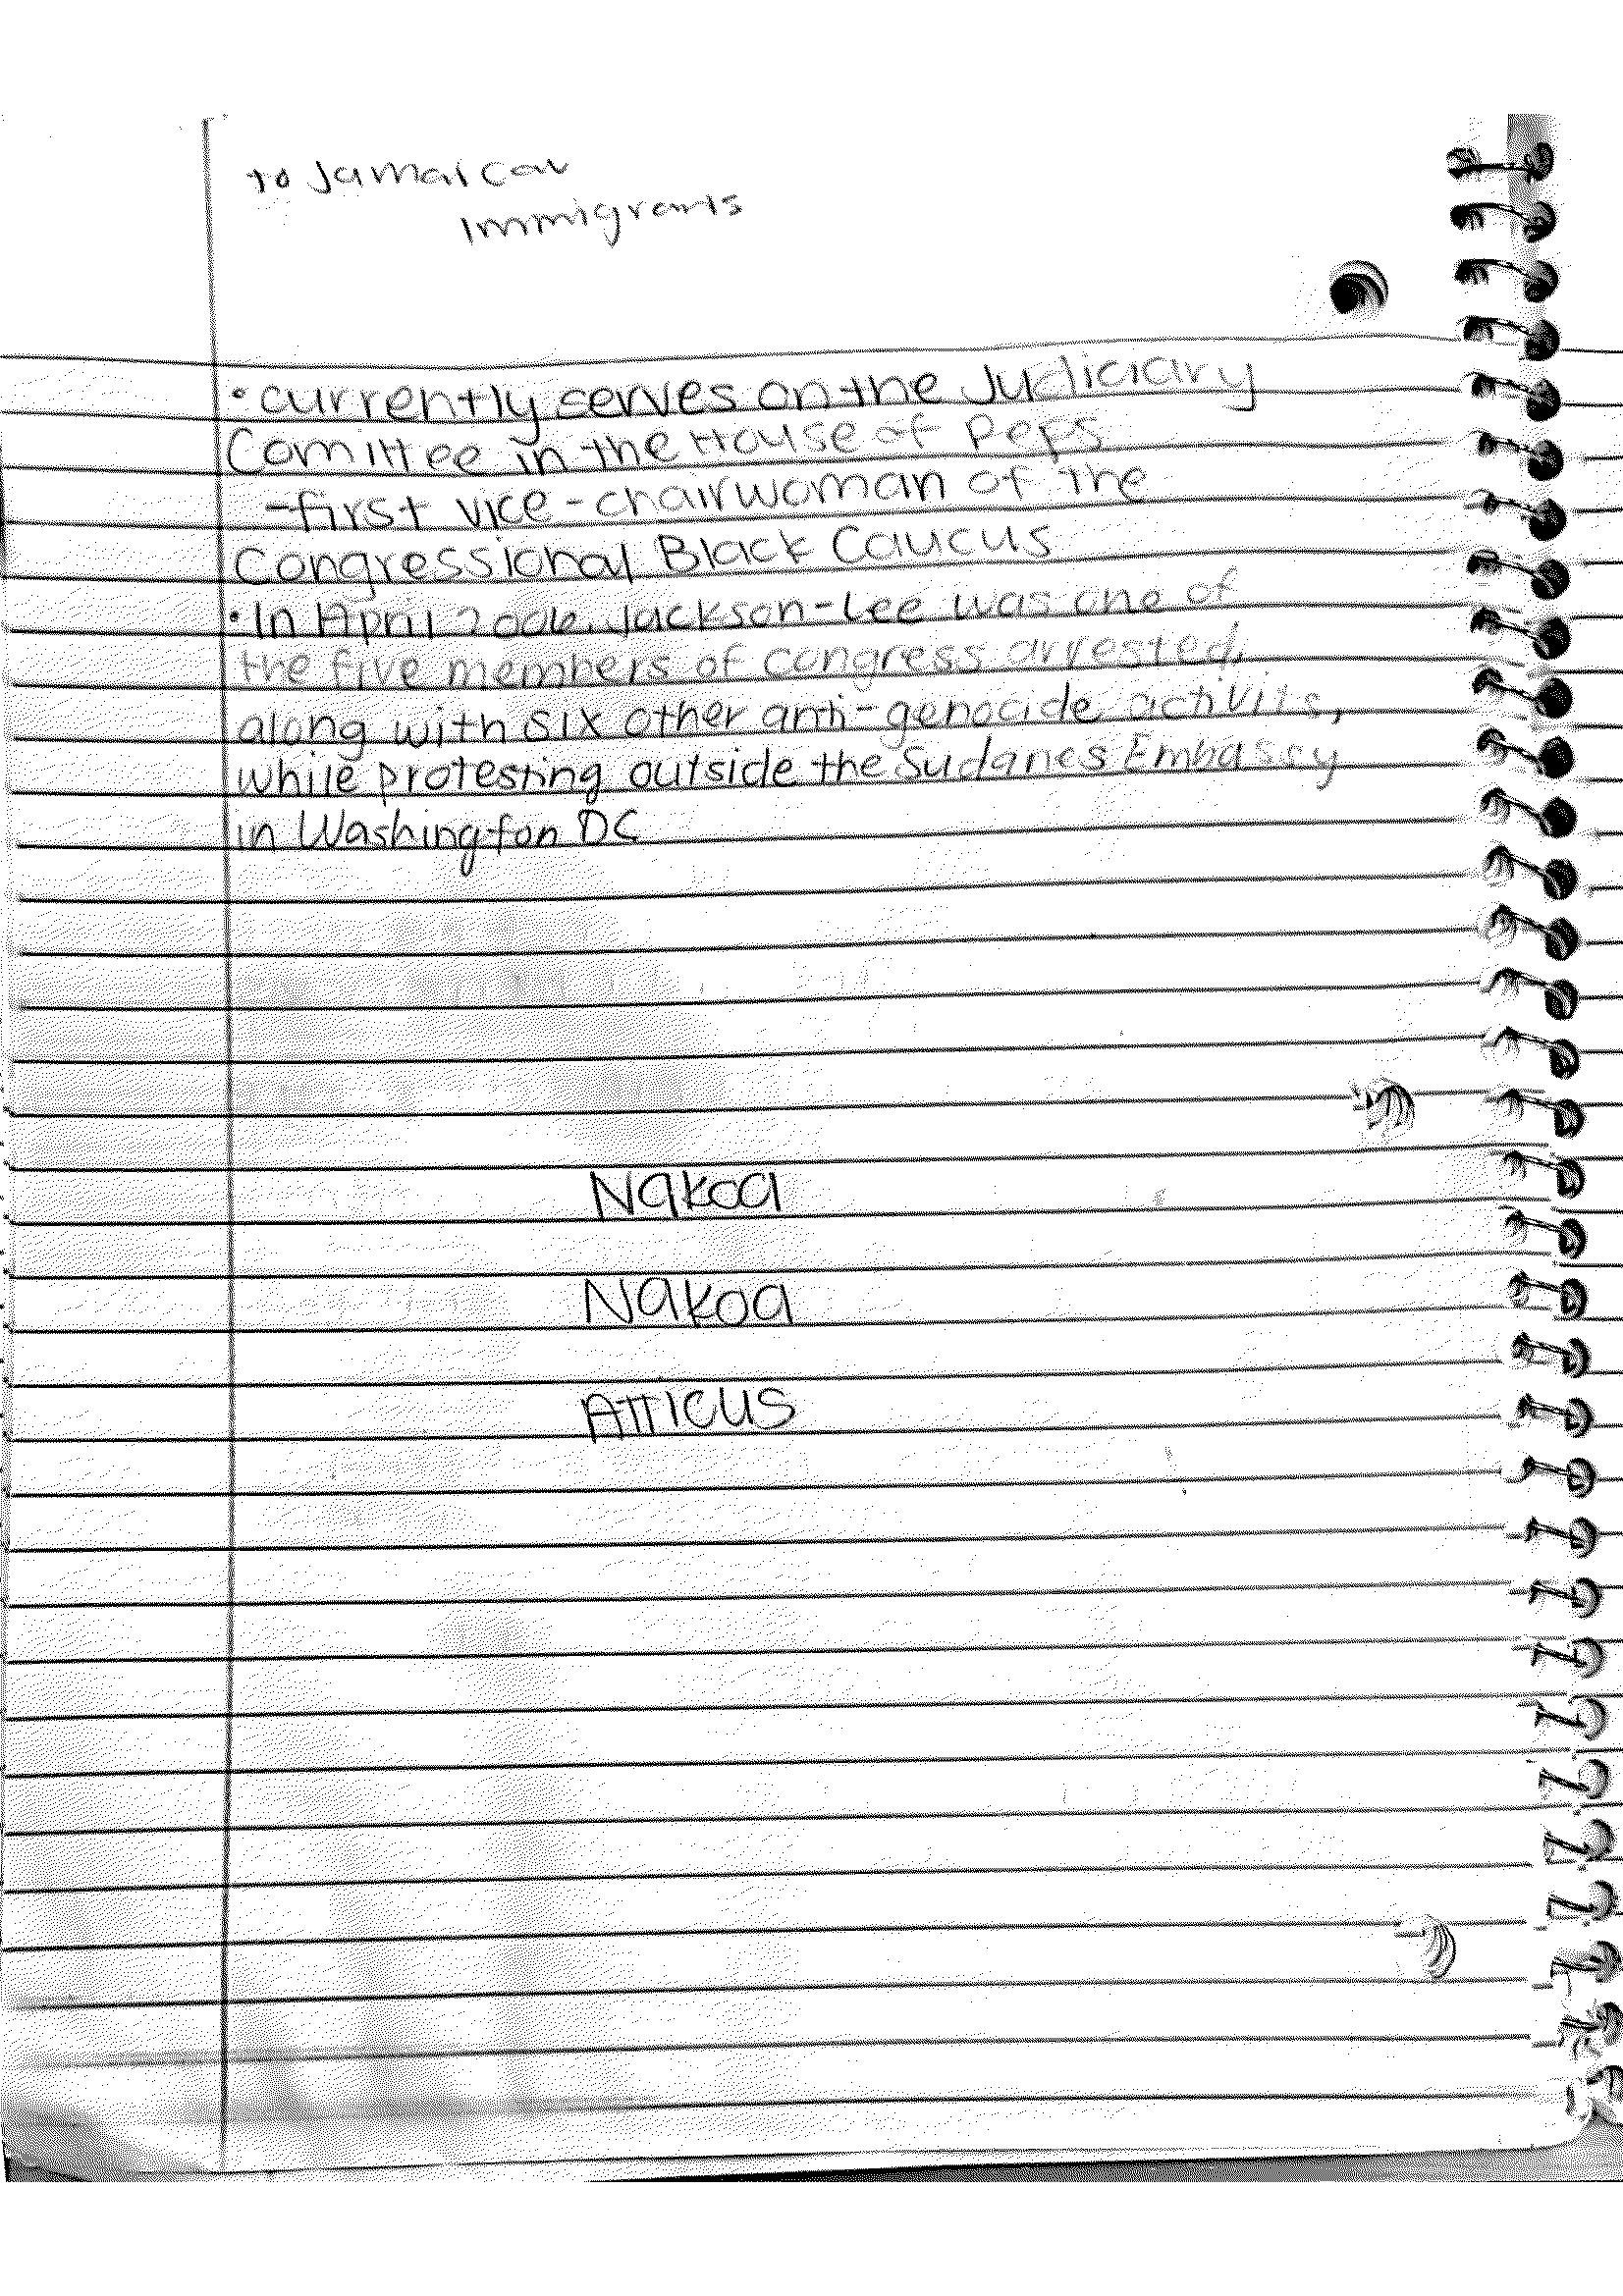 to Jamaican
Immigrants
• currently serves on the Judiciary
Comittee in the House of Reps
- first vice-chairwoman of the
Congressional Black Caucus
• In April 2006, Jackson-Lee was one of
the five members of congress arrested,
along with six other anti-genocide activits,
while protesting outside the Sudanes Embassy
in Washington DC
Nakoa
Nakoa
Atticus